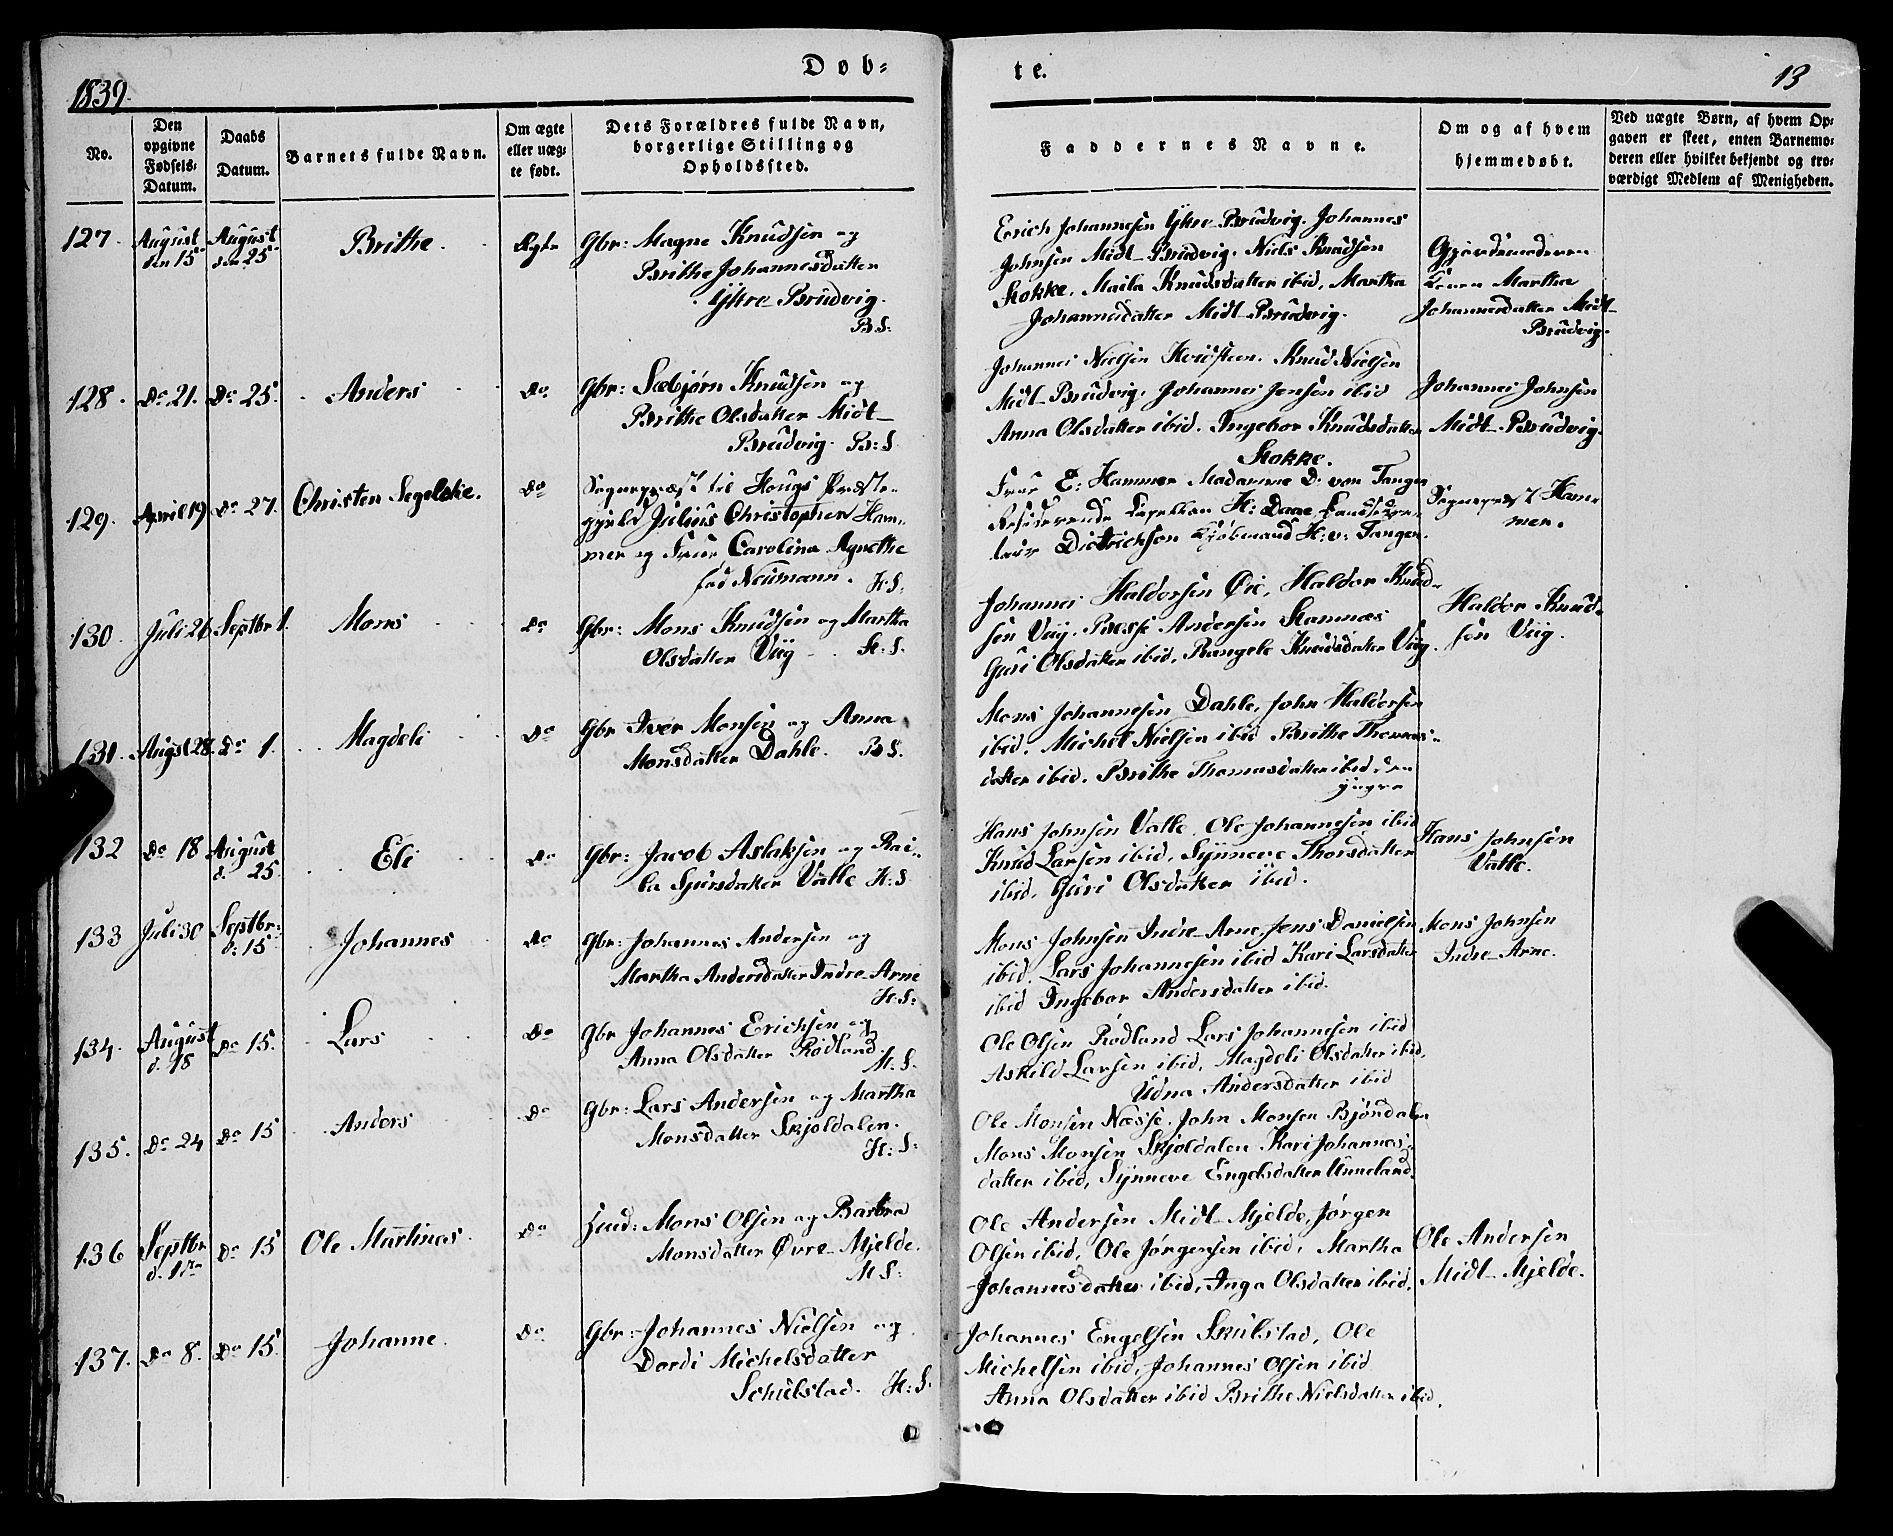 Døb-
te.
1839.
13
No.
Den opgivne Fødsels-Datum.
Daabs Datum.
Barnets fulde Navn.
Om ægte eller uægte født.
Dets Forældres fulde Navn, borgerlige Stilling og Opholdssted.
Faddernes Navne.
Om og af hvem hjemmedøbt.
Ved uægte Børn, af hvem Opgaven er skeet, enten Barnemoderen eller hvilket bekjendt og troværdigt Medlem af Menigheden.
127.
August den 15
August den 25
Brithe
Ægte
Gbr: Magne Knudsen og
Brithe Johannesdatter
Ytre Brudvig.
B.S:
Erich Johannesen Ytre Brudvig. Johannes
Johnsen Midt Brudvig. Niels Knudsen
Stokke. Maila Knudsdatter ibid, Martha
Johannesdatter Midt Brudvig.
Gjordemoderen
Konen Martha
Johannesdatter Midt
Brudvig.
128.
Do 21.
Do 25.
Anders
Do
Gbr: Sæbjørn Knudsen og
Brithe Olsdatter Midt
Brudvig. B:S
Johannes Nielsen Hvidsteen. Knud Nielsen
Midt Brudvig. Johannes Jensen ibid
Anna Olsdatter ibid. Ingebor Knudsdatter
Stokke.
Johannes Johnsen
Midt Brudvig.
129.
April 19
Do 27.
Christen Segelcke.
Do
Sognepræst til Hougs Præste-
gjeld Julius Christopher Ham-
mer og Frue Carolina Agnethe
fød Neumann. H:S.
Frue E: Hammer Madamme D. von Tangen
Residerende Capellan H: Daae
Dietrichson Kjøbmand H: v: Tangen.
Sognepræst Ham-
mer.
130.
Juli 26
Septbr 1.
Mons
Do
Gbr: Mons Knudsen og Martha
Olsdatter Viig H:S.
Johannes Haldorsen Øie, Haldor Knud-
sen Viig. Brithe Andersen Stamnæs
Guri Olsdatter ibid, Rangele Knudsdatter Viig.
Haldor Knud-
sen Viig.
131.
Augst 28.
Do 1.
Magdeli
Do
Gbr Iver Monsen og Anna
Monsdatter Dahle. B.S.
Mons Johannesen Dahle, John Haldorsen
ibid. Michel Nielsen ibid Brithe Thomas-
datter ibid. Brithe Thomasdatter ibid, den
yngre
132
Do 18
August d. 25.
Eli
Do
Gbr: Jacob Aslaksen og Rai-
la Sjursdatter Valle H:S
Hans Johnsen Valle. Ole Johannesen ibid
Knud Larsen ibid, Synneve Thorsdatter
ibid. Guri Olsdatter ibid.
Hans Johnsen
Valle.
133
Juli 30
Septbr: d: 15
Johannes
Do
Gbr: Johannes Andersen og
Martha Andersdatter Indre Arne
H:S:
Mons Johnsen Indre Arne Jens Danielsen
ibid. Lars Johannesen ibid Kari Larsdatter
ibid Ingebor Andersdatter ibid.
Mons Johnsen
Indre Arne.
134.
August d. 18
Do 15.
Lars
Do
Gbr Johannes Erichsen og
Anna Olsdatter Rødland.
H:S.
Ole Olsen Rødland Lars Johannesen ibid
Askild Larsen ibid, Magdeli Olsdatter ibid,
Udna Andersdatter ibid
135.
Do 24
Do 15
Anders
Do
Gbr: Lars Andersen og Martha
Monsdatter Skjoldalen.
H:S:
Ole Monsen Næsse. John Monsen Bjöndalen
Mons Monsen Skjoldalen Kari Johannes-
datter ibid, Synneve Engelsdatter Unneland.
136
Septbr d. 1ste
Do 15
Ole Martinus.
Do
Huud: Mons Olsen og Barbra
Monsdatter Øvre Mjelde.
H S:
Ole Andersen Midt Mjelde, Jørgen
Olsen ibid, Ole Jørgensen ibid, Martha
Johannesdatter ibid, Inga Olsdatter ibid.
Ole Andersen
Midt Mjelde.
137.
Do 8.
Do 15.
Johanne.
Do
Gbr: Johannes Nielsen og
Dordi Michelsdatter
Schulstad. H:S.
Johannes Engelsen Skulstad, Ole
Michelsen ibid, Johannes Olsen ibid
Anna Olsdatter ibid Brithe Nielsdatter ibid.